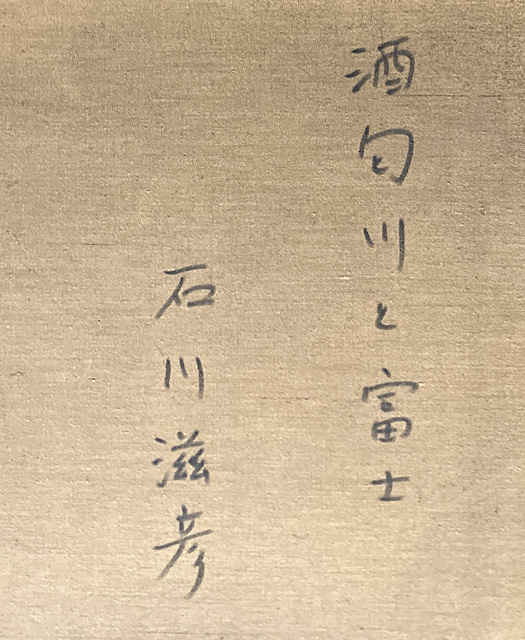 酒匂川と富士
石川滋彦